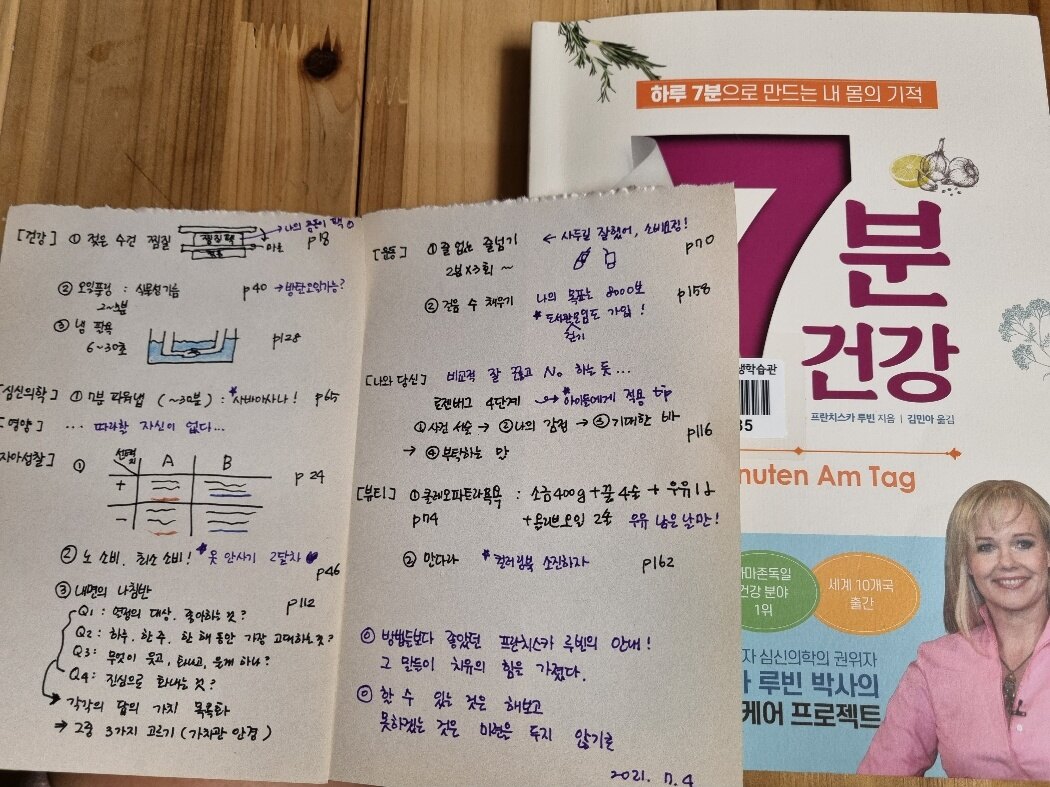 [건강] ① 젖은 수건 찜질 p18
찜질팩
→ 나의 콩콩이 팩
마른
② 오일풀링 : 식물성기름 p40 → 방탄오일가능?
2~5분
③ 냉 팔욕 p128
6~30초
[심신의학] ① 7분 파워냅 (~30분) : *사바아사나! p65
[영양] ... 따라할 자신이 없다...
자아성찰] ① 선택지 A B p24
+
-
② 노 소비, 최소 소비! *옷 안사기 2달차
p46
③ 내면의 나침반 p112
Q1: 열정의 대상. 좋아하는 것?
Q2: 하루, 한 주, 한 해 동안 가장 고대하는 것?
Q3: 무엇이 웃고, 화나고, 울게 하나?
Q4: 진심으로 화나는 것?
→ 각각의 답의 가치 목록화
→ 그중 3가지 고르기 (가치관 안경)
[운동] ① 줄 없는 줄넘기 ← 사두길 잘했어, 소비요정! p70
2분×3회 ~
② 걸음 수 채우기 나의 목표는 8000보 p158
*도서관모임도 가입!
걷기
[나와 당신] 비교적 잘 끊고 No 하는 듯...
로젠버그 4단계 → *아이들에게 적용 tip
① 사건 서술 → ② 나의 감정 → ③ 기대한 바 p116
→ ④ 부탁하는 말
[뷰티] ① 클레오파트라목욕 : 소금400g + 꿀4숟 + 우유1L
p74 + 올리브오일 2숟 우유 남은 날만!
② 만다라 *컬러링북 소진하자 p162
◎ 방법들보다 좋았던 프란치스카 루빈의 안내!
그 말들이 치유의 힘을 가졌다.
◎ 할 수 있는 것은 해보고
못하겠는 것은 미련을 두지 않기로
2021. 7. 4
하루 7분으로 만드는 내 몸의 기적
7분
건강
생학습관
35
프란치스카 루빈 지음 | 김민아 옮김
nuten Am Tag
아마존독일
건강 분야
1위
세계 10개국
출간
자 심신의학의 권위자
루빈 박사의
케어 프로젝트